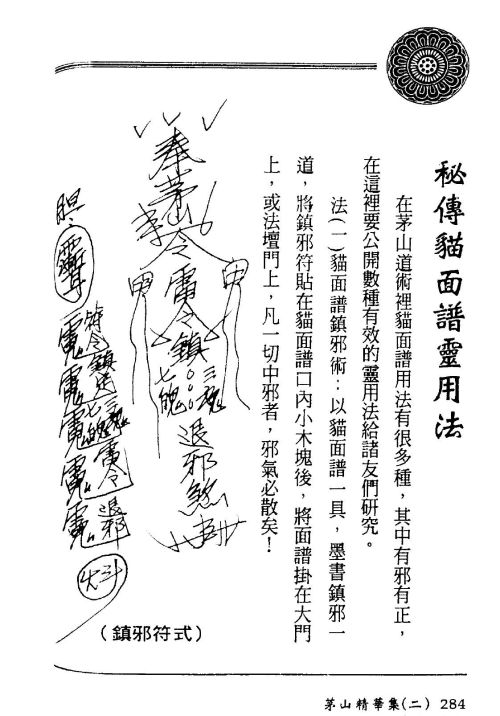 秘傳貓面譜靈用法
在茅山道術裡貓面譜用法有很多種，其中有邪有正，
在這裡要公開數種有效的靈用法給諸友們研究。
法(一)貓面譜鎮邪術：以貓面譜一具，墨書鎮邪一
道，將鎮邪符貼在貓面譜口內小木塊後，將面譜掛在大門
上，或法壇門上，凡一切中邪者，邪氣必散矣！
奉茅山令雷令鎮
三魂
七魄
退邪煞
符令鎮
三魂
七魄
雷令
退邪
（鎮邪符式）
茅山精華集(二) 284